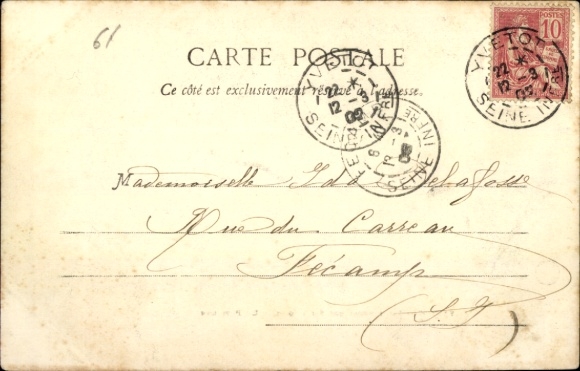 61
CARTE POSTALE
Ce côté est exclusivement réservé à l'adresse.
POSTES
10
YVETOT
22
12 -3
03
SEINE INFRE
YVETOT
22
12 -3
03
SEINE INFRE
SEINE INFRE
Mademoiselle Ida Delafosse
Rue du Carreau
Fécamp
(S. I)